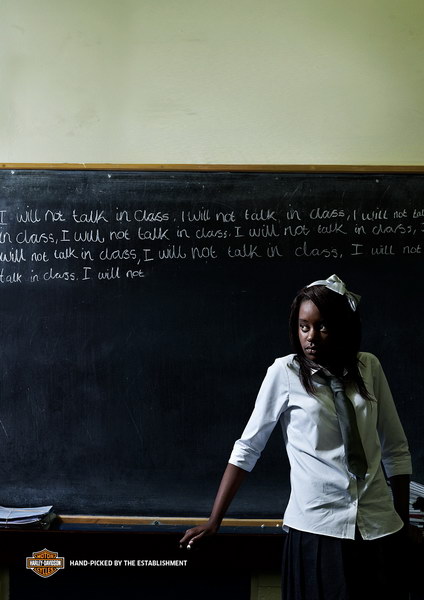 I will not talk in class. I will not talk in class, I will not tal
in class, I will not talk in class. I will not talk in class, I
will not talk in class, I will not talk in class, I will not
talk in class. I will not
MOTOR
HARLEY-DAVIDSON
STYLES
HAND-PICKED BY THE ESTABLISHMENT